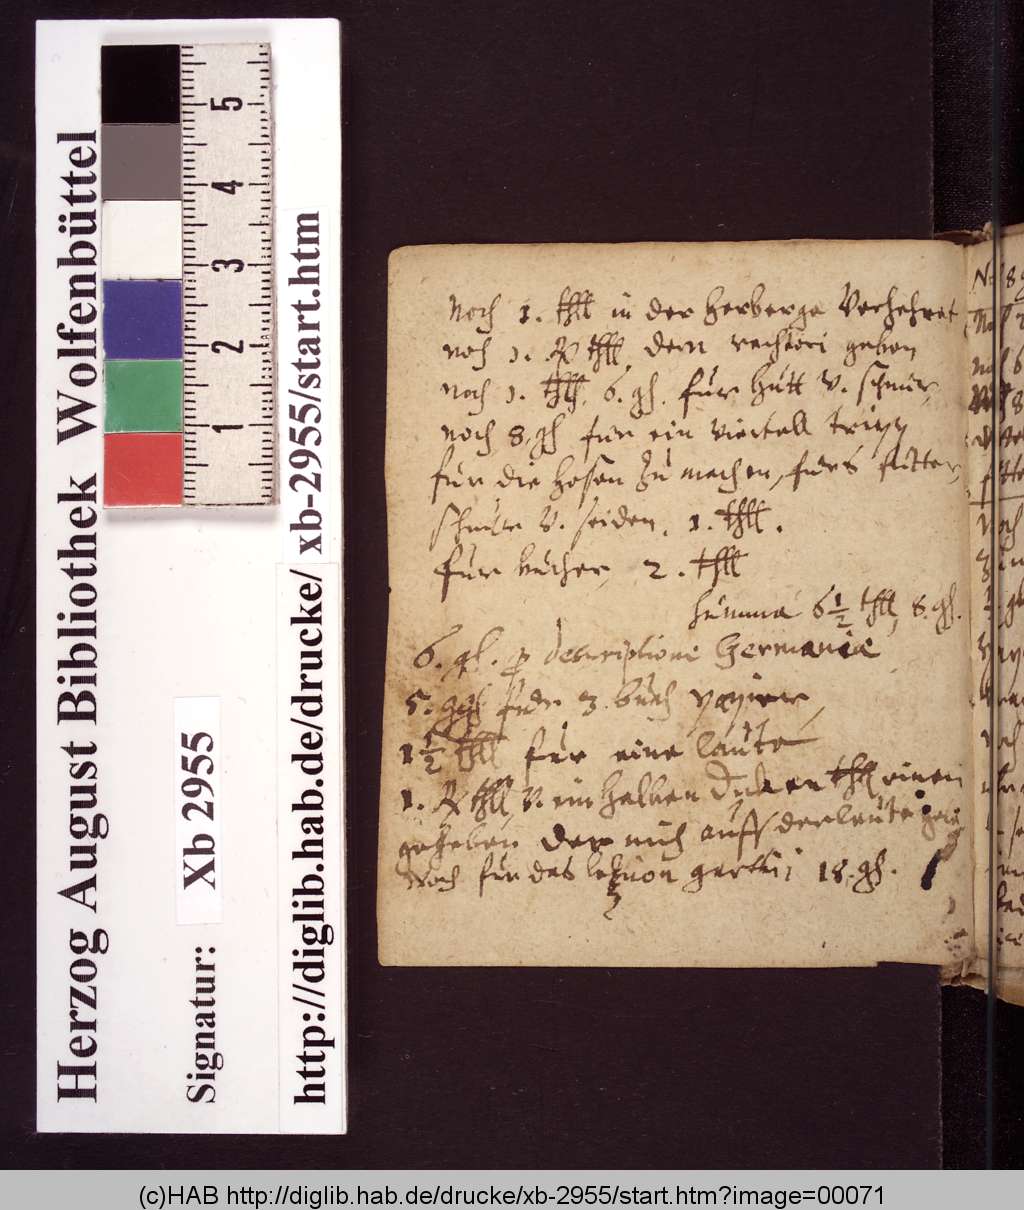 Herzog August Bibliothek Wolfenbüttel
Signatur: Xb 2955
http://diglib.hab.de/drucke/xb-2955/start.htm
5
4
3
2
1
Noch 1. thll in der herberge verzehret
noch 1. R thll dem rechtori geben
noch 1. thll. 6. gl. fur hutt v. schnur,
noch 8. gl fur ein viertell tripp
fur die hosen zu machen, furs futter,
schnur v. seiden, 1. thll.
fur bucher, 2. thll
Summa 6 1/2 thll, 8. gl.
6. gl. p descriptione Germaniæ
5. ggl fur 3. buch papier,
1 1/2 thll fur eine laute
1. R thll, v. ein halben thll einen
gegeben der mich auff der laute
Noch fur das gertlin 18. gl.
(c)HAB http://diglib.hab.de/drucke/xb-2955/start.htm?image=00071